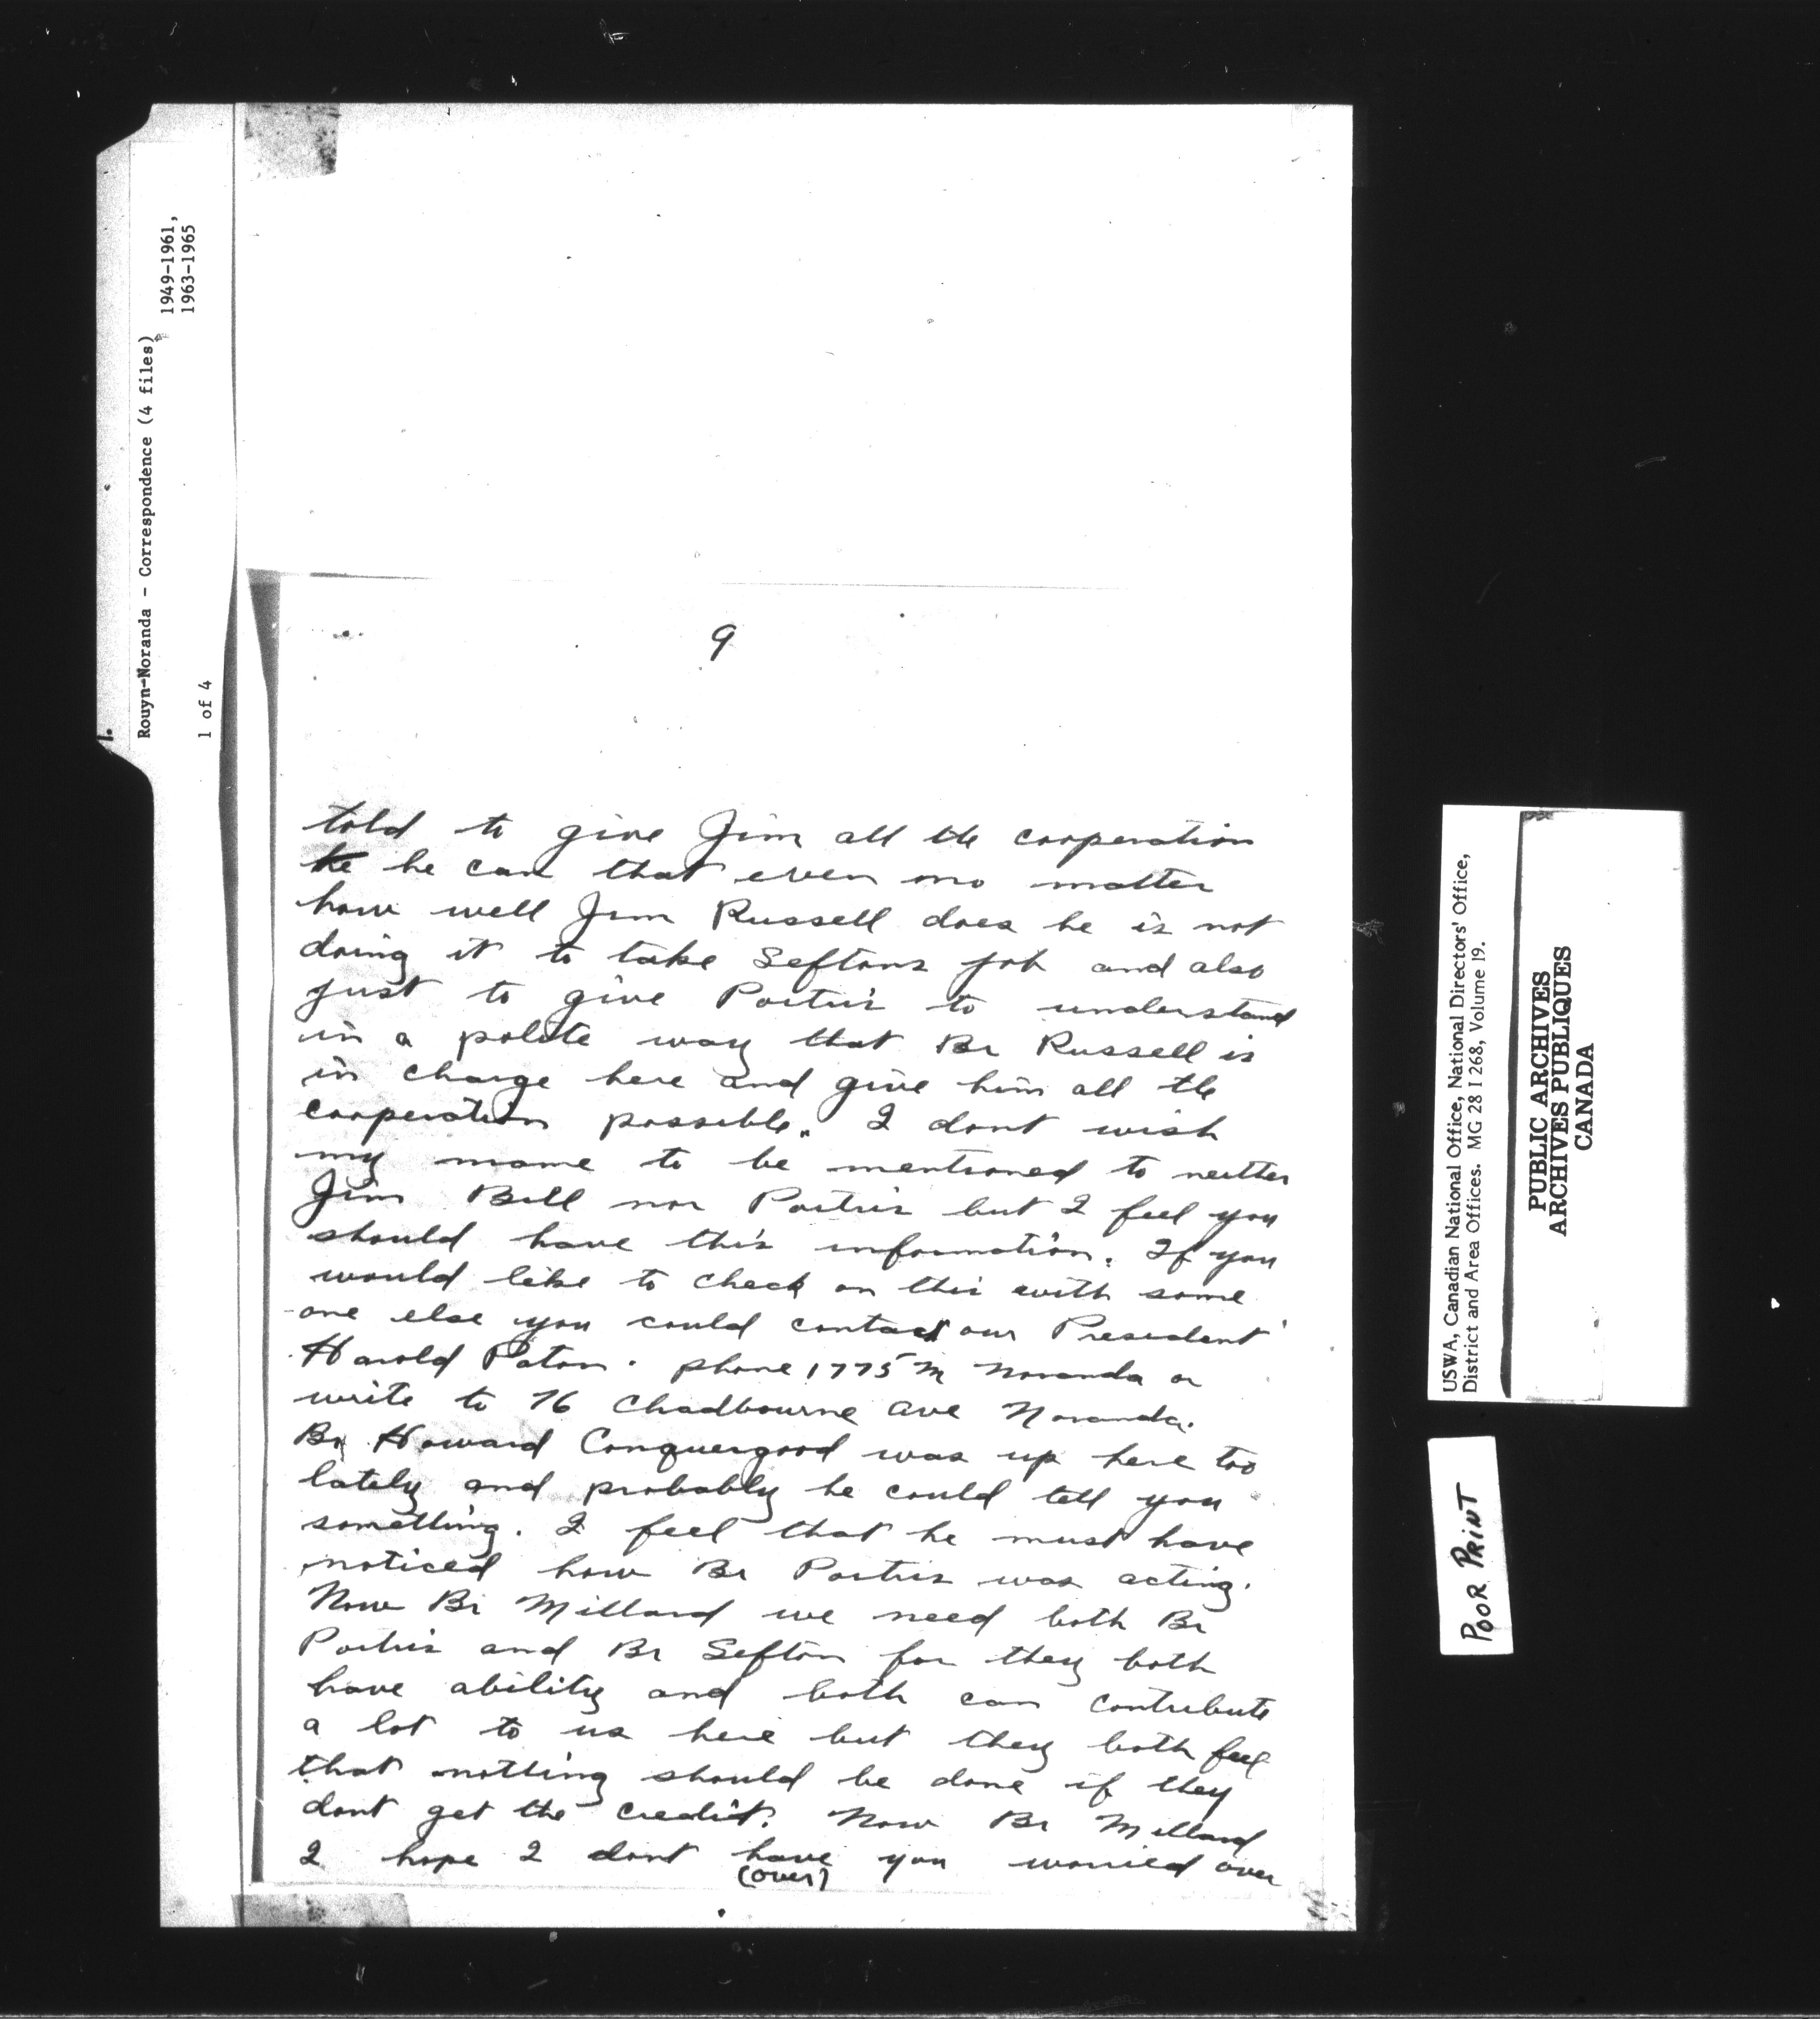 1.
Rouyn-Noranda - Correspondence (4 files)
1949-1961,
1963-1965
1 of 4
9
told to give Jim all the cooperation
he he can that even no matter
how well Jim Russell does he is not
doing it to take Seftons job and also
just to give Portris to understand
in a polite way that Br Russell is
in charge here and give him all the
cooperation possible. I dont wish
my name to be mentioned to neither
Jim Bill nor Portris but I feel you
should have this information. If you
would like to check on this with some
one else you could contact our President
Harold Paton. phone 1775 M Noranda or
write to 76 Chadbourne ave Noranda.
Br Howard Conquergood was up here too
lately and probably he could tell you
something. I feel that he must have
noticed how Br Portris was acting.
Now Br Millard we need both Br
Portris and Br Sefton for they both
have ability and both can contribute
a lot to us here but they both feel
that nothing should be done if they
dont get the credit. Now Br Millard
I hope I dont have you worried over
(over)
USWA, Canadian National Office, National Directors' Office,
District and Area Offices. MG 28 I 268, Volume 19.
PUBLIC ARCHIVES
ARCHIVES PUBLIQUES
CANADA
POOR PRINT